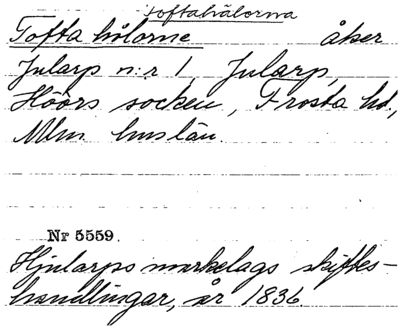 toftahålorna
Tofta hålorne åker
Jularp n:r 1, Jularp,
Höörs socken, Frosta hd.,
Mlm hus län.
Nr 5559.
Hjularps markelags skiftes-
handlingar, år 1836